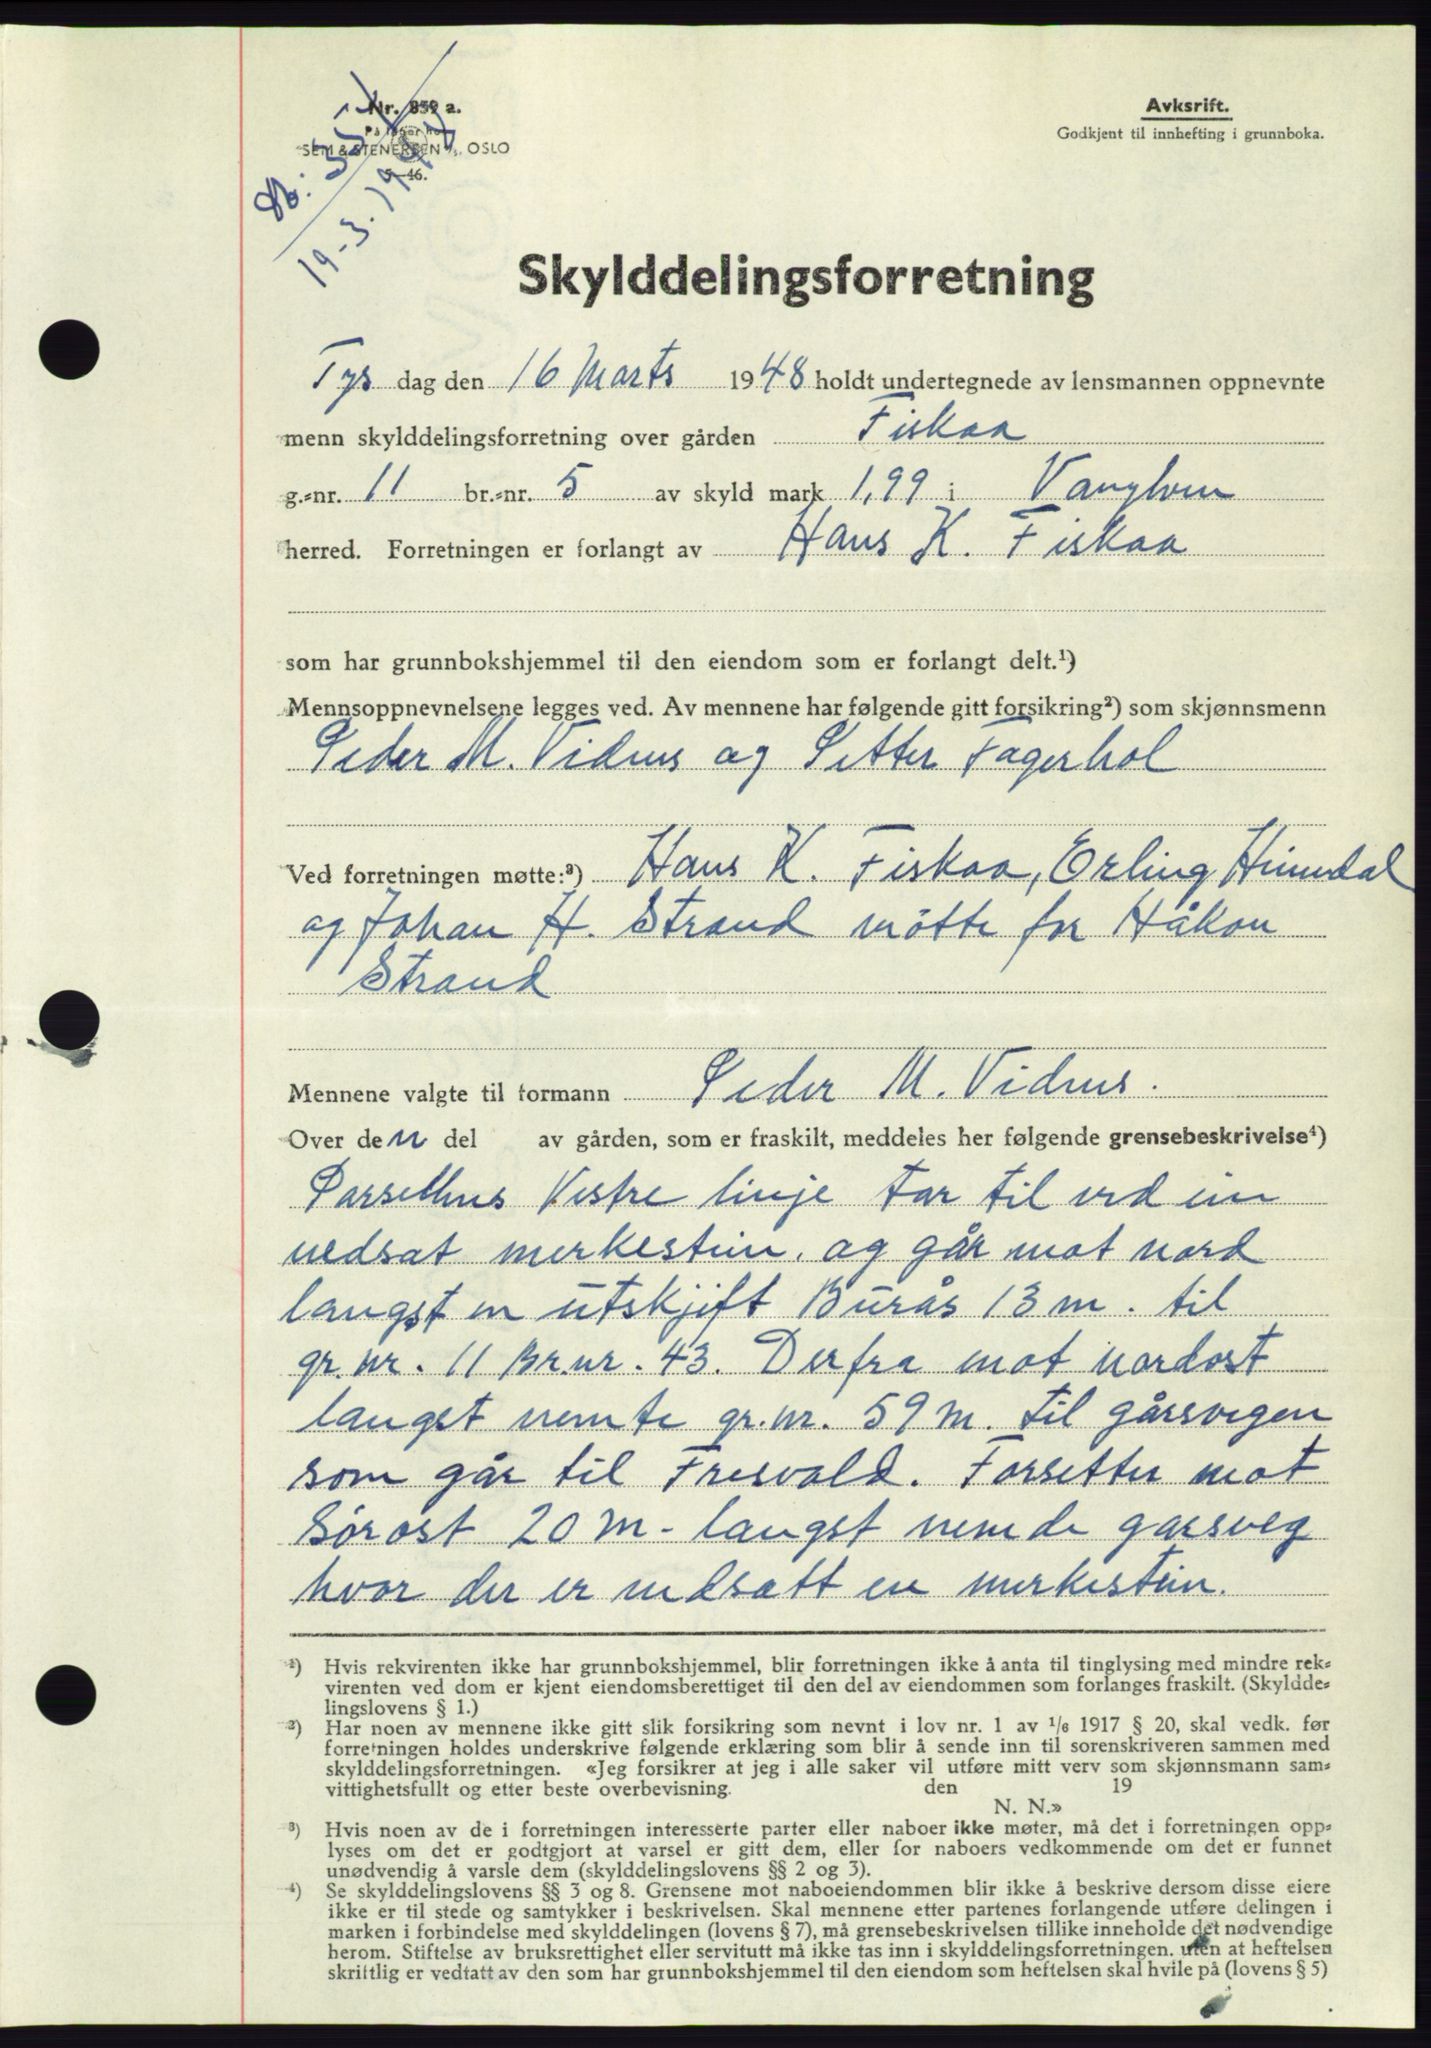 Nr. 859 a.
På lager hos
SEM & STENERSEN A/S, OSLO
5—46.
Avksrift.
Godkjent til innhefting i grunnboka.
19-3-1948
Skylddelingsforretning
Tys dag den 16 Marts 1948 holdt undertegnede av lensmannen oppnevnte
menn skylddelingsforretning over gården Fiskaa
g.=nr. 11 br.=nr. 5 av skyld mark 1,99 i Vanylven
herred. Forretningen er forlangt av Hans K. Fiskaa
som har grunnbokshjemmel til den eiendom som er forlangt delt.¹)
Mennsoppnevnelsene legges ved. Av mennene har følgende gitt forsikring²) som skjønnsmenn
Peder M. Vidnes og Petter Fagerhol
Ved forretningen møtte:³) Hans K. Fiskaa, Erling Heimdal
og Johan H. Strand møtte for Håkon
Strand
Mennene valgte til formann Peder M. Vidnes.
Over den del av gården, som er fraskilt, meddeles her følgende grensebeskrivelse⁴)
Parsellens Vestre linje tar til ved ein
nedsat merkestein. og går mot nord
langst m utskjift Burås 13 m. til
gr. nr. 11 Br. nr. 43. Derfra mot nordost
langst nemte gr. nr. 59 m. til gårsvegen
som går til Fresvald. Forsetter mot
Sørost 20 m - langst nemde garsveg
hvor der er nedsatt en merkestein.
¹) Hvis rekvirenten ikke har grunnbokshjemmel, blir forretningen ikke å anta til tinglysing med mindre rek=
virenten ved dom er kjent eiendomsberettiget til den del av eiendommen som forlanges fraskilt. (Skyldde=
lingslovens § 1.)
²) Har noen av mennene ikke gitt slik forsikring som nevnt i lov nr. 1 av 1/6 1917 § 20, skal vedk. før
forretningen holdes underskrive følgende erklæring som blir å sende inn til sorenskriveren sammen med
skylddelingsforretningen. «Jeg forsikrer at jeg i alle saker vil utføre mitt verv som skjønnsmann sam=
vittighetsfullt og etter beste overbevisning. den 19
N. N.»
³) Hvis noen av de i forretningen interesserte parter eller naboer ikke møter, må det i forretningen opp=
lyses om det er godtgjort at varsel er gitt dem, eller for naboers vedkommende om det er funnet
unødvendig å varsle dem (skylddelingslovens §§ 2 og 3).
⁴) Se skylddelingslovens §§ 3 og 8. Grensene mot naboeiendommen blir ikke å beskrive dersom disse eiere
ikke er til stede og samtykker i beskrivelsen. Skal mennene etter partenes forlangende utføre delingen i
marken i forbindelse med skylddelingen (lovens § 7), må grensebeskrivelsen tillike inneholde det nødvendige
herom. Stiftelse av bruksrettighet eller servitutt må ikke tas inn i skylddelingsforretningen. uten at heftelsen
skriftlig er vedtatt av den som har grunnbokshjemmel til den eiendom som heftelsen skal hvile på (lovens § 5)